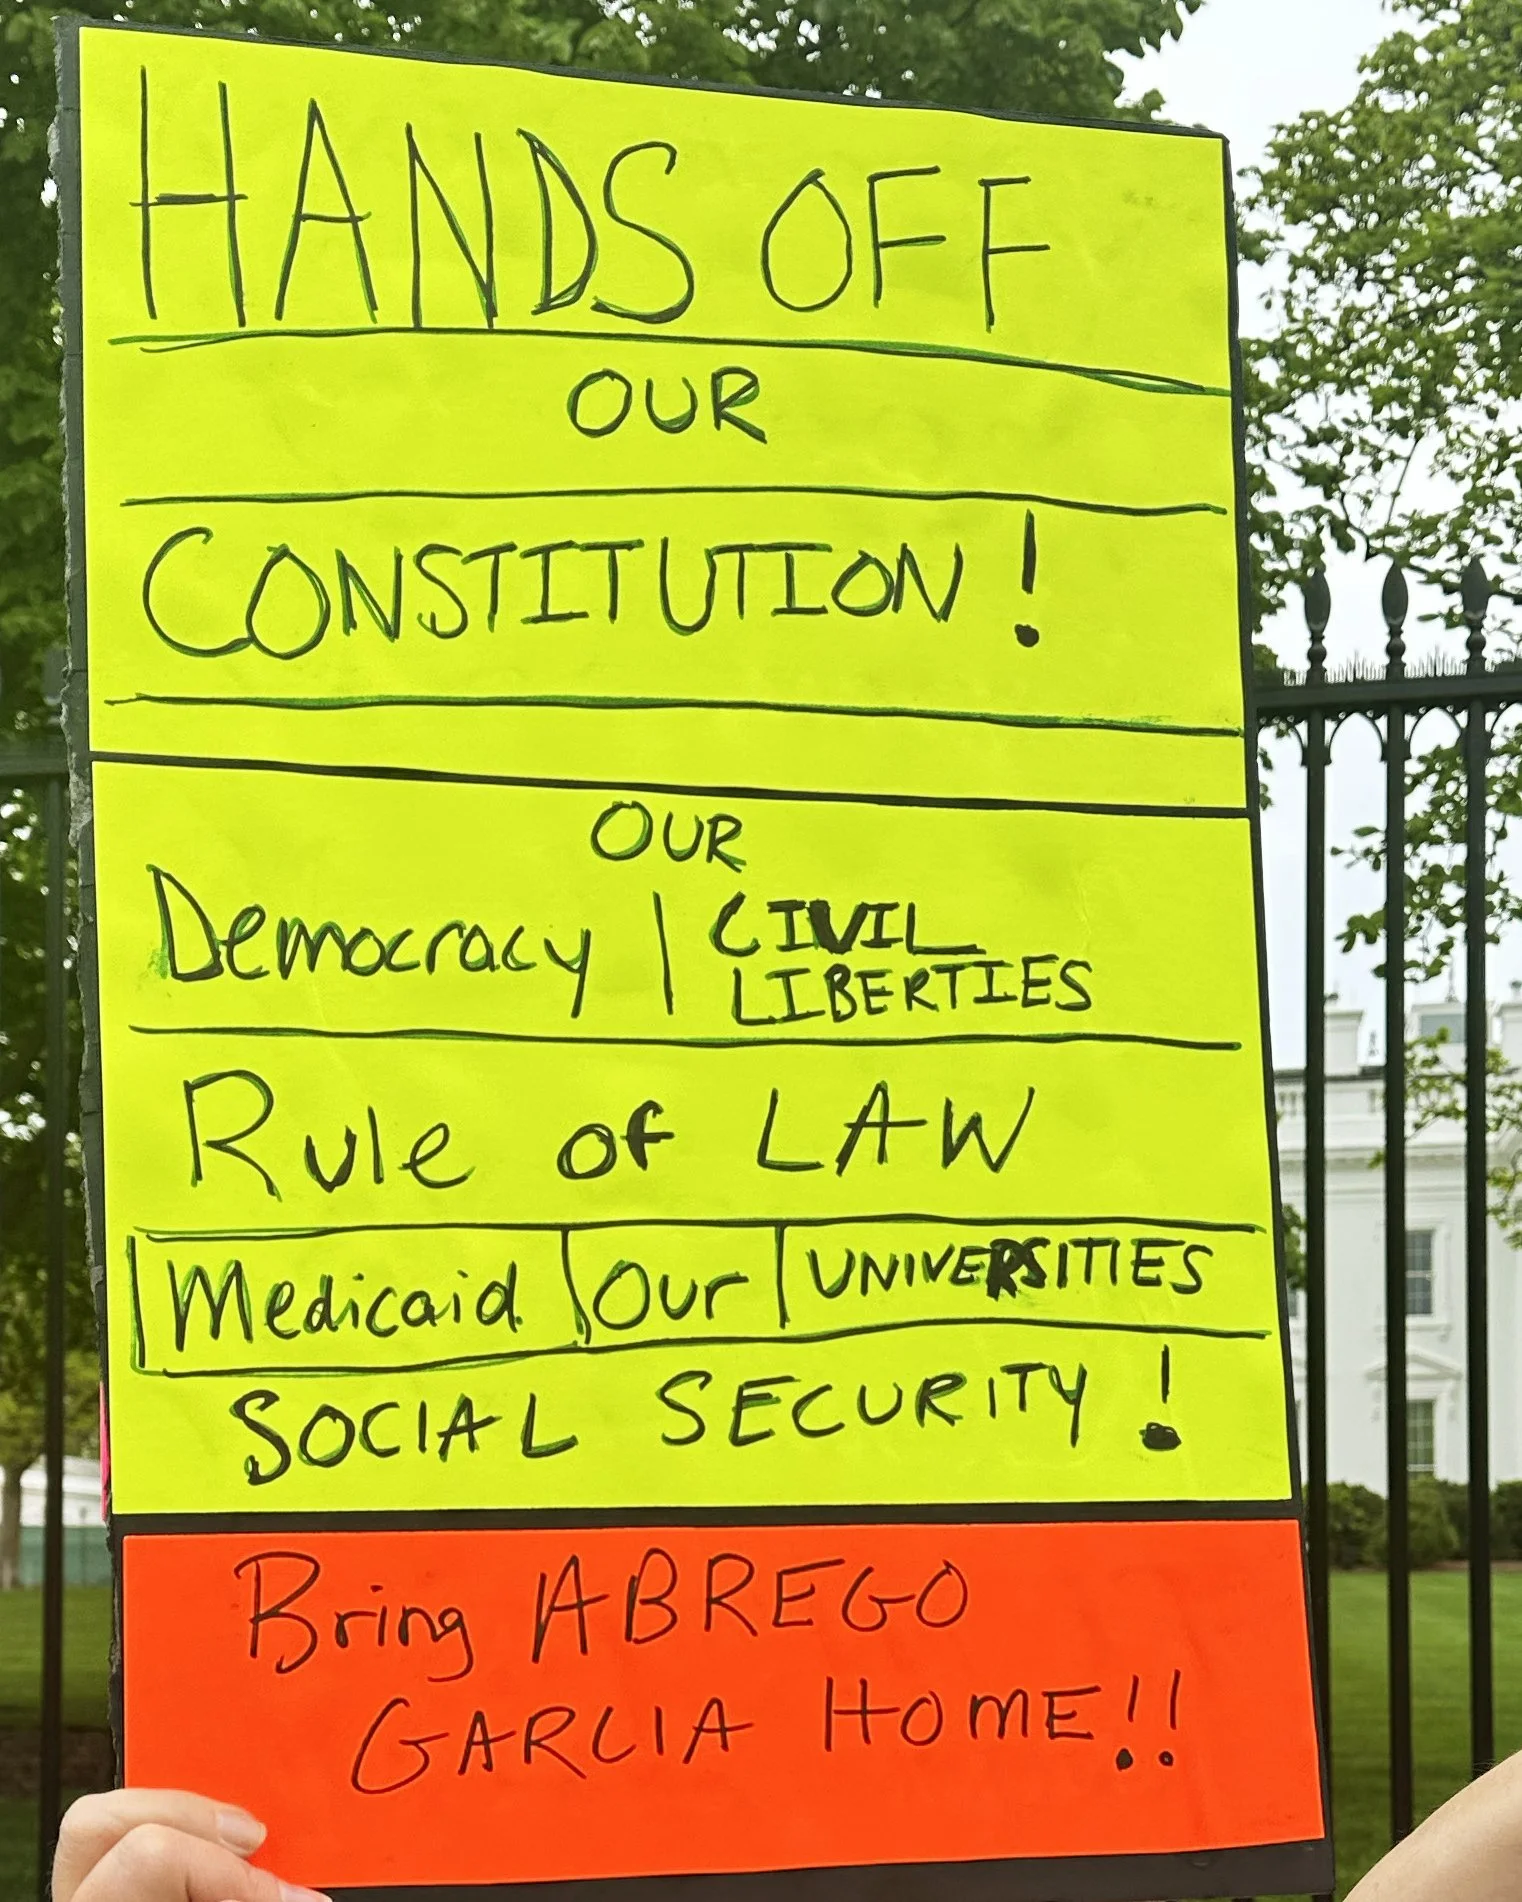 HANDS OFF
OUR
CONSTITUTION!
OUR
Democracy | CIVIL
LIBERTIES
Rule of LAW
Medicaid | Our | UNIVERSITIES
SOCIAL SECURITY!
Bring ABREGO
GARCIA HOME!!